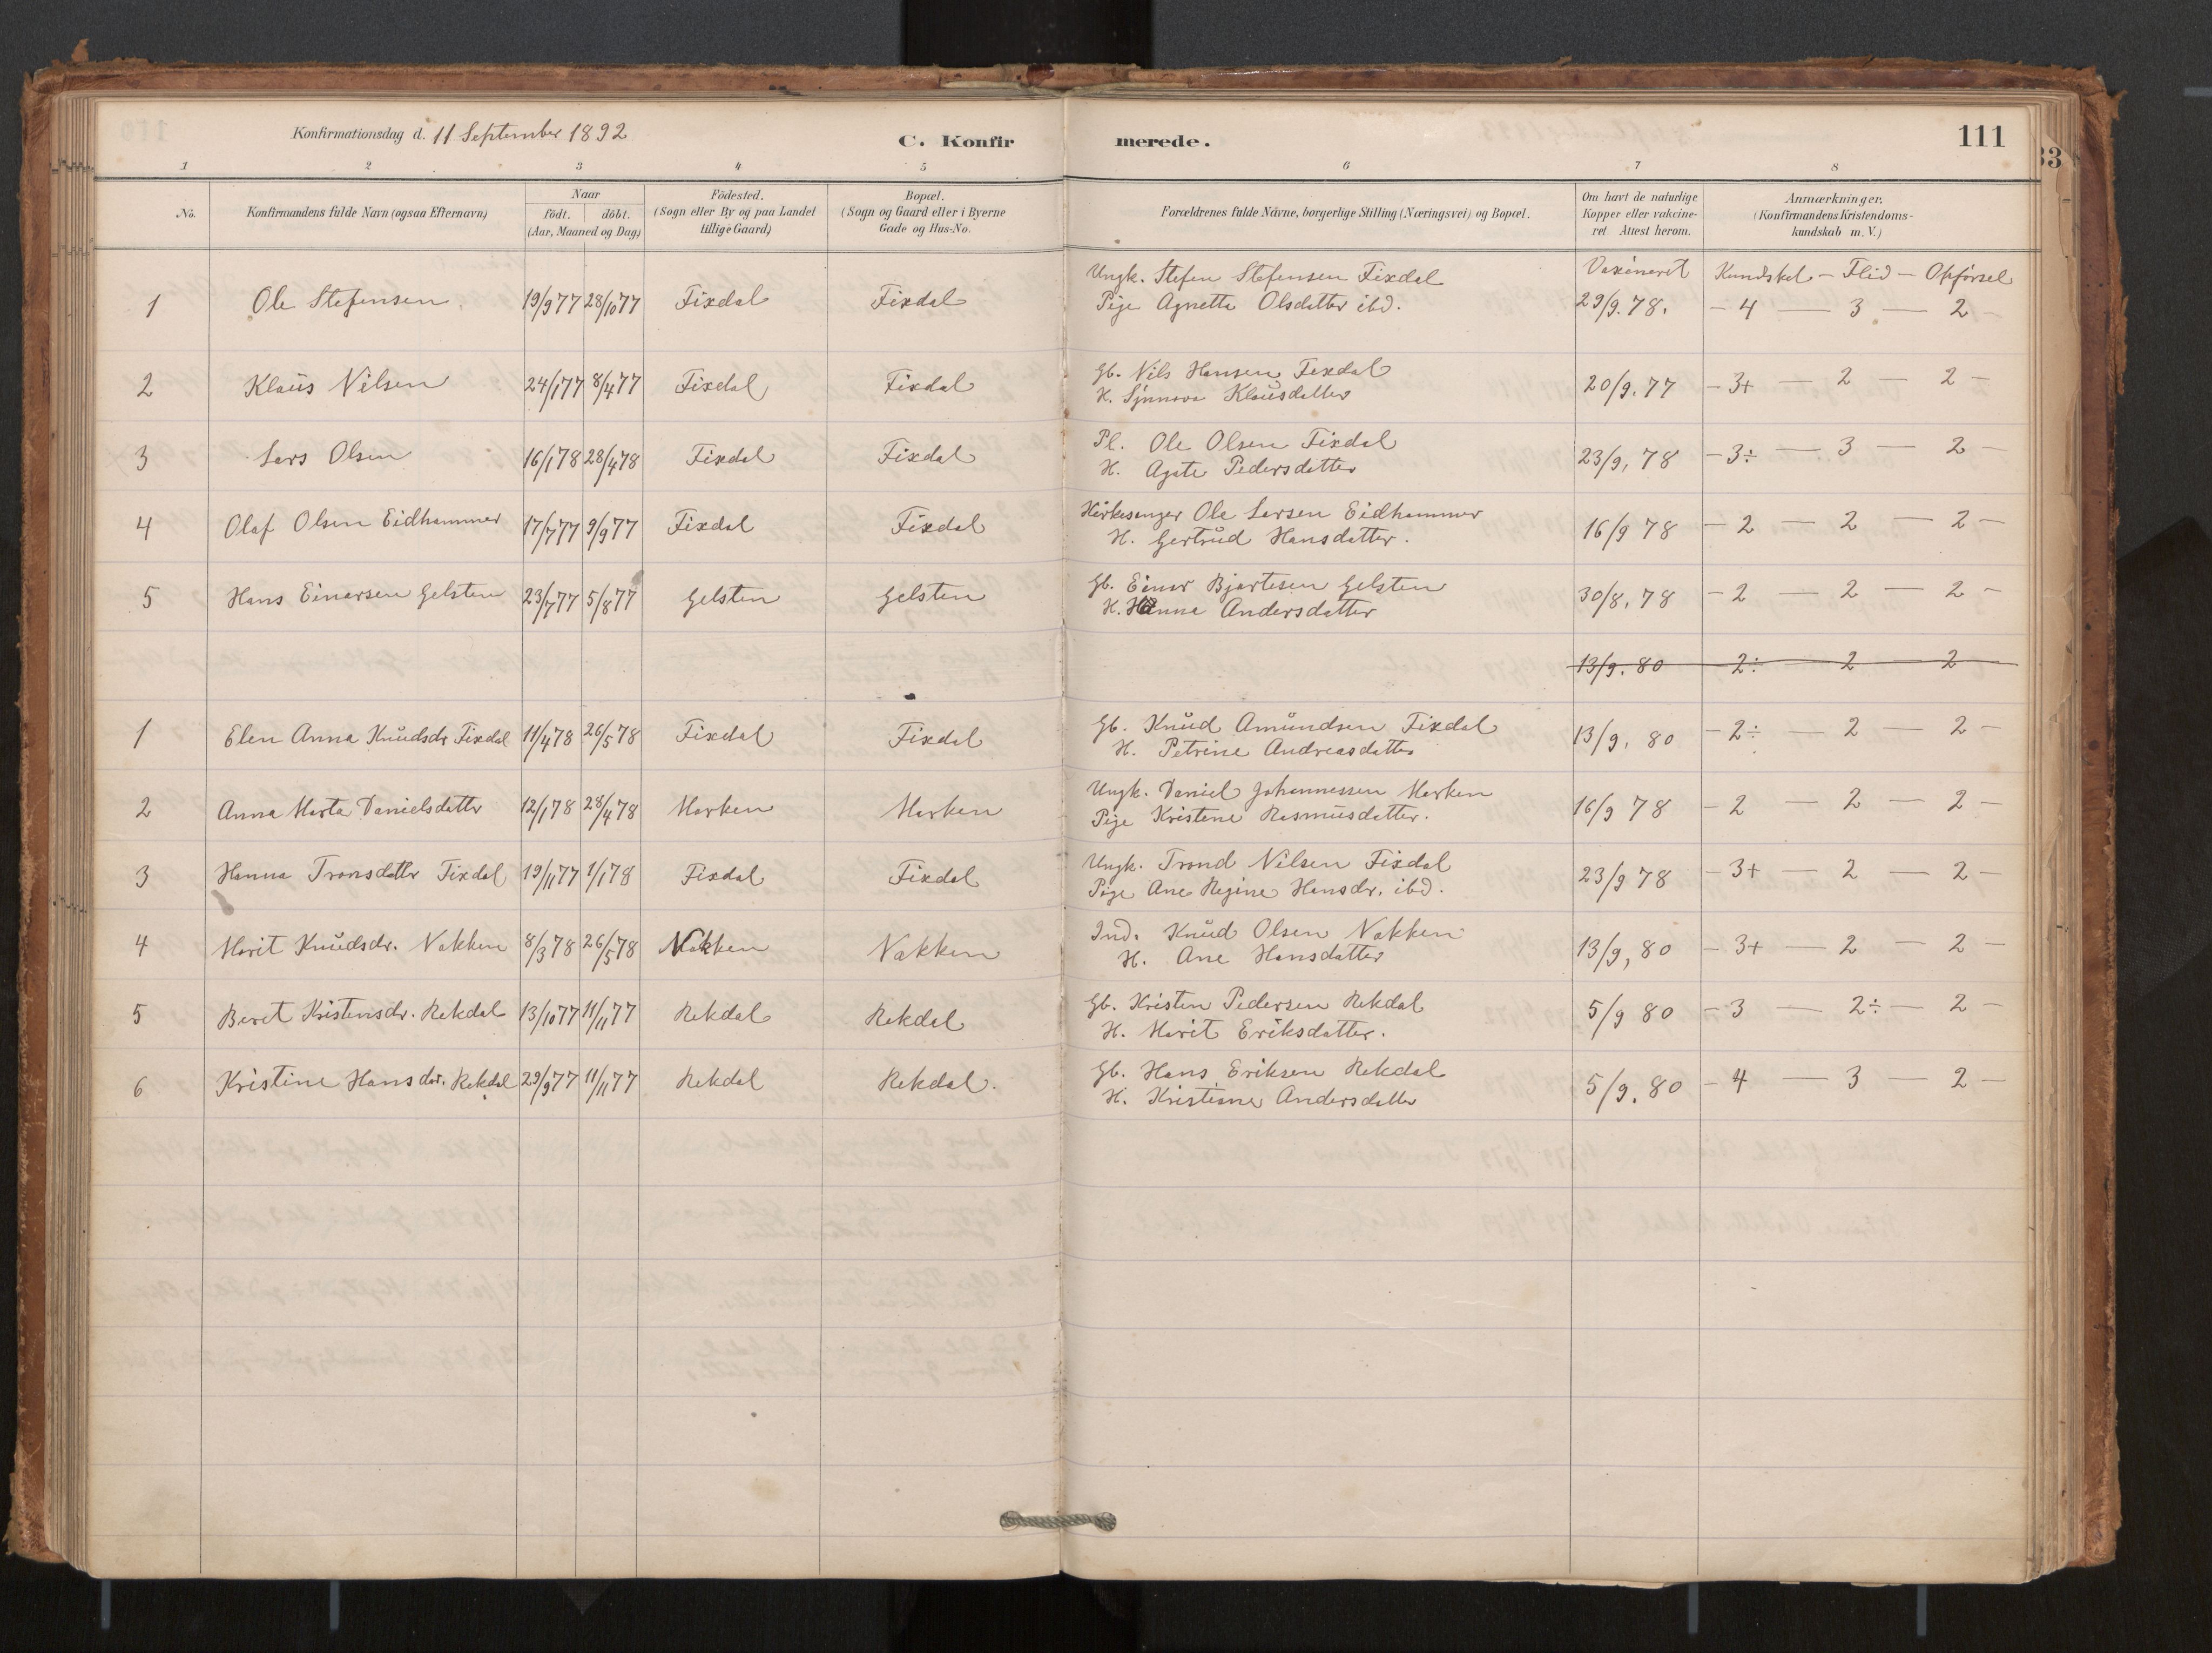 Konfirmationsdag d. 11 September 1892
C. Konfirmerede.
111
33
1 2 3 4 5 6 7 8
No. Konfirmandens fulde Navn (ogsaa Efternavn) Naar födt. döbt. (Aar, Maaned og Dag) Födested. (Sogn eller By og paa Landet tillige Gaard) Bopæl. (Sogn og Gaard eller i Byerne Gade og Hus-No. Forældrenes fulde Návne, borgerlige Stilling (Næringsvei) og Bopæl. Om havt de naturlige Kopper eller vakcineret Attest herom. Anmærkninger. (Konfirmandens Kristendomskundskab m. V.)
Ungk. Stefen Stefensen Fixdal Vaxineret Kundskab – Flid – Opförsel
1 Ole Stefensen 19/9 77 28/10 77 Fixdal Fixdal Pige Agnetta Olsdatter ibd. 29/9. 78. – 4 – 3 – 2 –
Gb. Nils Hansen Fixdal
2 Klaus Nilsen 24/1 77 8/4 77 Fixdal Fixdal H. Synnova Klausdatter 20/9. 77 – 3+ – 2 – 2 –
Pl. Ole Olsen Fixdal
3 Lars Olsen 16/1 78 28/4 78 Fixdal Fixdal H. Agate Pedersdatter 23/9, 78 – 3÷ – 3 – 2 –
Kirkesanger Ole Larsen Eidhammer
4 Olaf Olsen Eidhammer 17/7 77 9/9 77 Fixdal Fixdal H. Gertrud Hansdatter. 16/9 78 – 2 – 2 – 2 –
Gb. Einar Bjartesen Gelsten
5 Hans Einarsen Gelsten 23/7 77 5/8 77 Gelsten Gelsten H. Hanna Andersdatter 30/8, 78 – 2 – 2 – 2 –
13/9. 80 2÷ – 2 – 2
Gb. Knud Amundsen Fixdal
1 Elen Anna Knudsdr Fixdal 11/4 78 26/5 78 Fixdal Fixdal H. Petrine Andreasdatter 13/9, 80 – 2÷ – 2 – 2 –
Ungk. Daniel Johannessen Harken
2 Anna Marta Danielsdatter 12/1 78 28/4 78 Harken Harken Pige Kristene Rasmusdatter. 16/9 78 – 2 – 2 – 2 –
Ungk. Trond Nilsen Fixdal
3 Hanna Tronsdatter Fixdal 19/11 77 1/1 78 Fixdal Fixdal Pige Ane Regine Hansdr. ibd. 23/9 78 – 3+ – 2 – 2 –
Ind. Knud Olsen Nakken
4 Marit Knudsdr. Nakken 8/3 78 26/5 78 Nakken Nakken H. Ane Hansdatter 13/9, 80 – 3+ – 2 – 2 –
Gb. Kristen Pedersen Rekdal
5 Beret Kristensdr. Rekdal 13/10 77 11/11 77 Rekdal Rekdal H. Marit Eriksdatter. 5/9 80 – 3 – 2÷ – 2 –
Gb. Hans Eriksen Rekdal
6 Kristine Hansdtr. Rekdal 29/9 77 11/11 77 Rekdal Rekdal. H. Kristine Andersdatter 5/9. 80 – 4 – 3 – 2 –